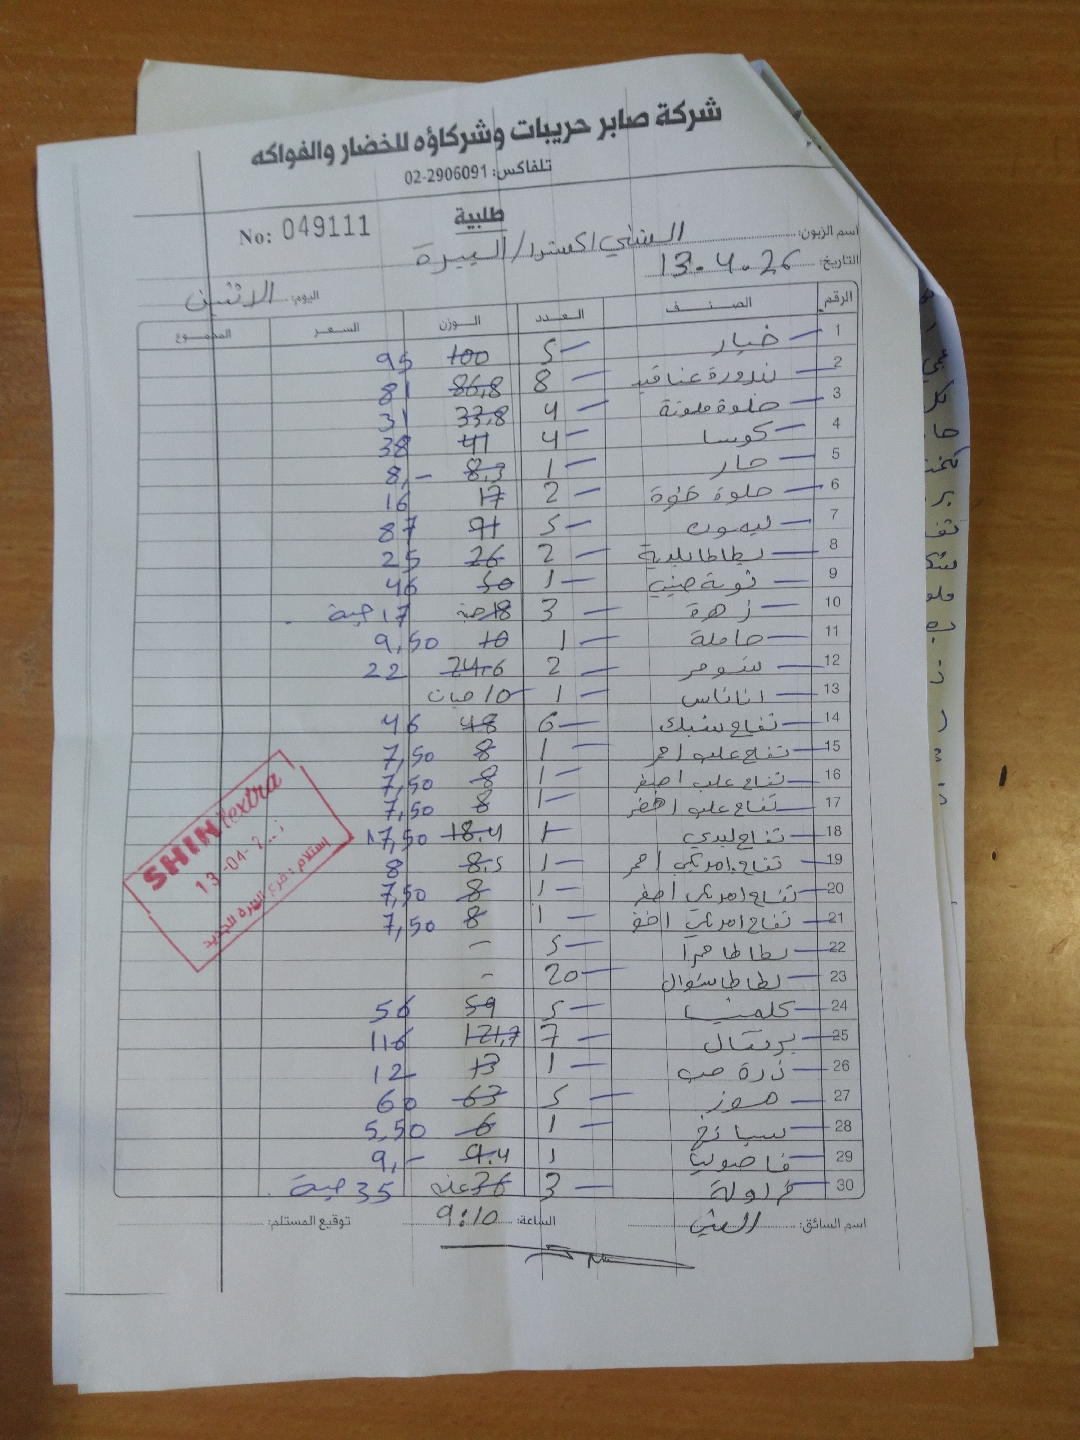 شركة صابر حريبات وشركاؤه للخضار والفواكه
تلفاكس: 02-2906091
طلبية
No: 049111
اسم الزبون: الشني اكسترا / البيرة
التاريخ: 13.4.26
اليوم: الاثنين
الرقم الصنف العدد الوزن السعر المجموع
1 خيار 5 100 95
2 بندورة عناقيد 8 86,8 81
3 حلوة ملونة 4 33,8 31
4 كوسا 4 41 38
5 حار 1 8,3 8,-
6 حلوة 2 17 16
7 ليمون 5 91 87
8 بطاطا بلدية 2 26 25
9 ثومة صيني 1 50 46
10 زهرة 3 18 حبة 17 حبة
11 حاملة 1 10 9,50
12 شومر 2 24,6 22
13 اناناس 1 10 حبات
14 تفاح شبك 6 48 46
15 تفاح علب احمر 1 8 7,50
16 تفاح علب اصفر 1 8 7,50
17 تفاح علب اخضر 1 8 7,50
18 تفاح ليدي 1 18,4 17,50
19 تفاح امريكي احمر 1 8,5 8
20 تفاح امريكي اصفر 1 8 7,50
21 تفاح امريكي 1 8 7,50
22 بطاطا حمرا 5 -
23 بطاطا شوال 20 -
24 كلمنتينا 5 59 56
25 برتقال 7 121,7 116
26 ذرة حب 1 13 12
27 موز 5 63 60
28 سبانخ 1 6 5,50
29 فاصوليا 1 9,4 9,-
30 فراولة 3 36 علبة 35 حبة
اسم السائق: الشني
الساعة: 9:10
توقيع المستلم:
SHINI extra
13-04-2
استلام : فرع البيرة الجديد